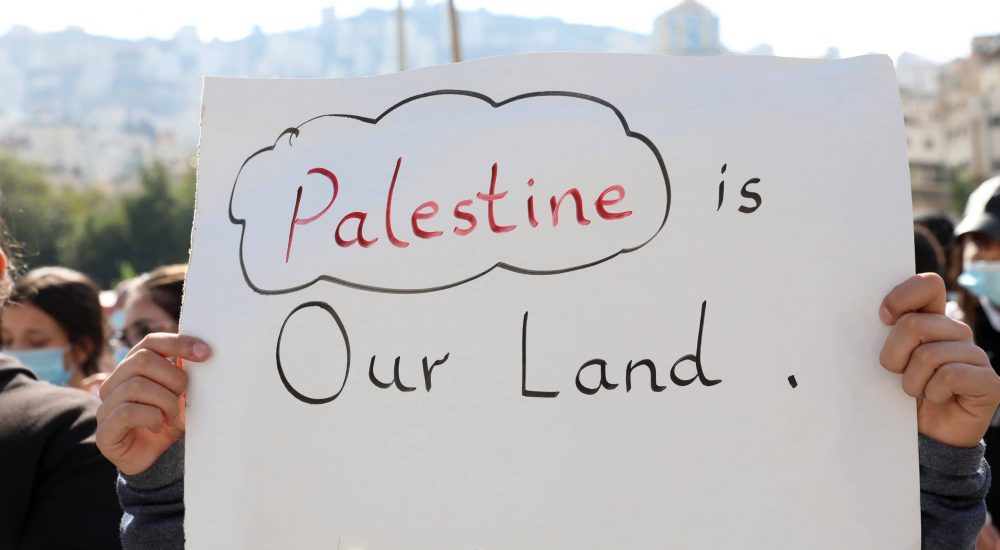 Palestine is
Our Land .